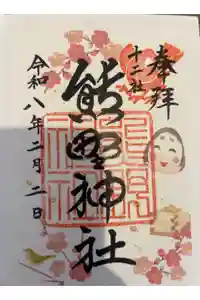 奉拝
十二社
熊野神社
令和八年二月二日